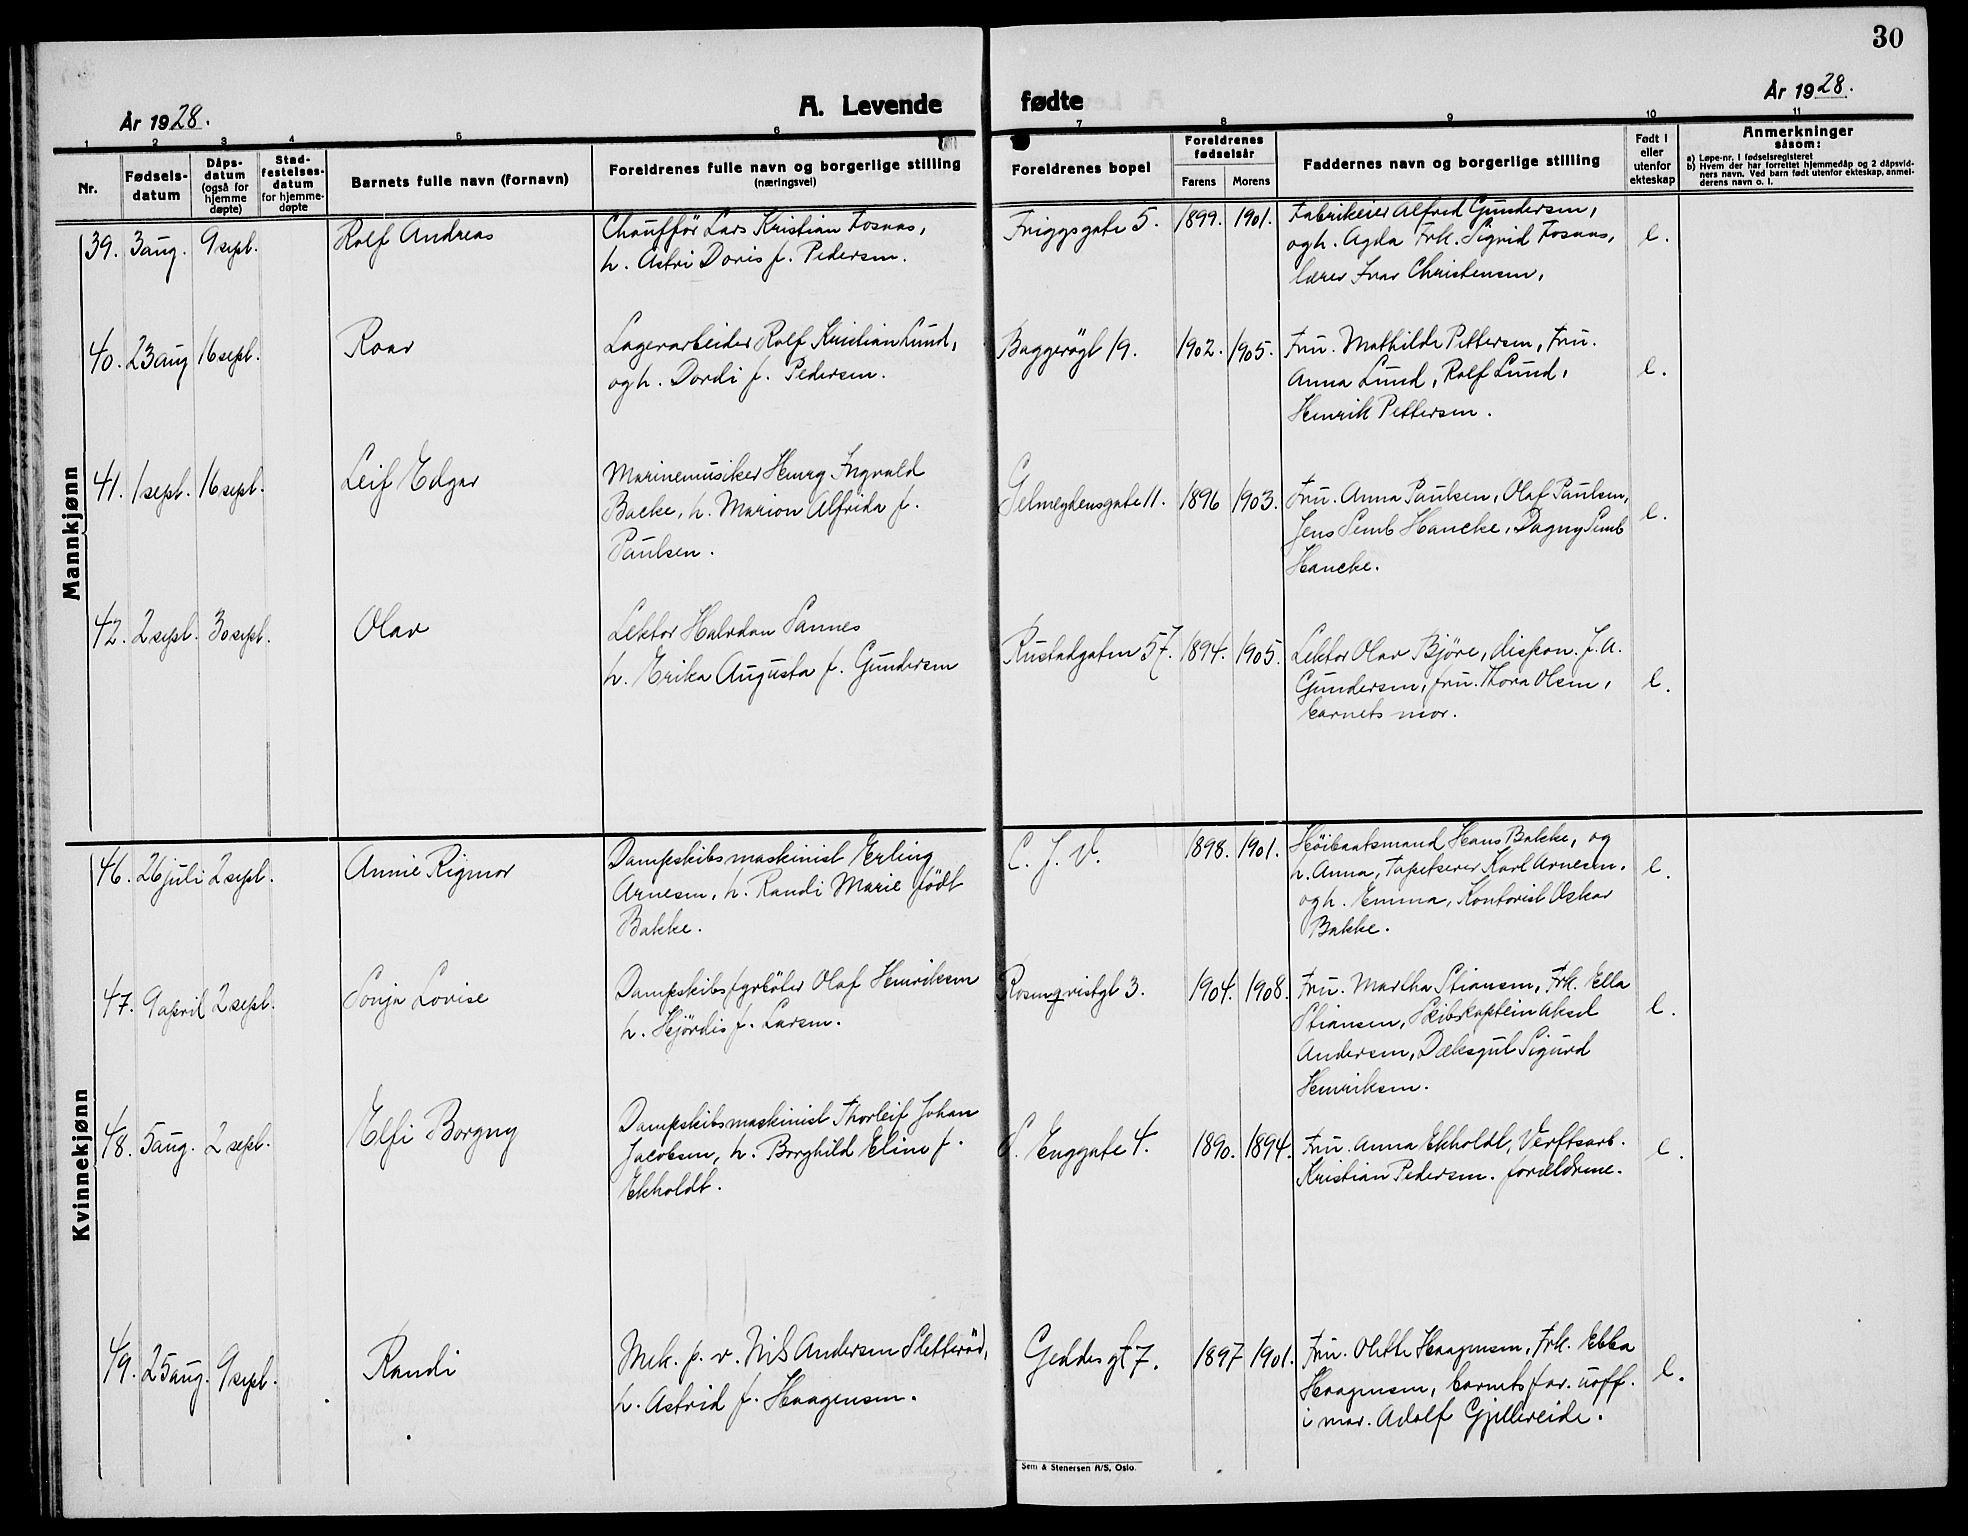 30
År 1928.
A. Levende fødte
År 1928.
1 2 3 4 5 6 7 8 9 10 11
Nr.
Fødsels-
datum
Dåps-
datum
(også for
hjemme
døpte)
Stad-
festelses-
datum
for hjemme-
døpte
Barnets fulle navn (fornavn)
Foreldrenes fulle navn og borgerlige stilling
(næringsvei)
Foreldrenes bopel
Foreldrenes
fødselsår
Farens
Morens
Faddernes navn og borgerlige stilling
Født i
eller
utenfor
ekteskap
Anmerkninger
såsom:
a) Løpe-nr. i fødselsregisteret
b) Hvem der har forrettet hjemmedåp og 2 dåpsvid-
ners navn. Ved barn født utenfor ekteskap, anmel-
derens navn o. l.
Mannkjønn
39. 3 aug. 9 sept. Rolf Andreas
Chauffør Lars Kristian Fosaas,
h. Astri Doris f. Pedersen.
Friggsgate 5. 1899. 1901.
Fabrikeier Alfred Gundersen,
og h. Agda Frk. Sigrid Fosaas,
lærer Ivar Christensen,
e.
40. 23 aug 16 sept. Roar
Lagerarbeider Rolf Kristian Lund,
og h. Dordi f. Pedersen.
Baggerøgt 19. 1902. 1905.
Fru. Mathilde Pettersen, Fru.
Anna Lund, Rolf Lund,
Henrik Pettersen.
e.
41. 1 sept. 16 sept. Leif Edgar
Marinemusiker Henry Ingvald
Backe, h. Marion Alfrida f.
Paulsen.
Gelmeydensgate 11. 1896 1903.
Fru. Anna Paulsen, Olaf Paulsen,
Jens Semb Hancke, Dagny Semb
Hancke.
e.
42. 2 sept. 30 sept. Olav
Lektor Halvdan Sannes
h. Erika Augusta f. Gundersen
Rustadgaten 57. 1894. 1905.
Lektor Olav Björe, dispon. J. A.
Gundersen, fru. Thora Olsen,
barnets mor.
e.
Kvinnekjønn
46. 26 juli 2 sept. Annie Rigmor
Dampskibsmaskinist Erling
Arnesen, h. Randi Marie födt
Bakke.
C. J. V. 1898. 1901.
Höibaatsmand Hans Bakke, og
h. Anna, Tapetserer Karl Arnesen.
og h. Emma, Kontorist Oskar
Bakke.
e.
47. 9 april 2 sept. Sonja Lovise
Dampskibsfyrböter Olaf Henriksen
h. Hjördis f. Larsen.
Rosenqvistgt 3. 1904. 1908.
Fru. Martha Stiansen, Frk. Ella
Stiansen, Skibskaptein Aksel
Andersen, Dæksgut Sigurd
Henriksen.
e.
48. 5 aug. 2 sept. Elfi Borgny
Dampskibsmaskinist Thorleif Johan
Jacobsen, h. Borghild Eline f.
Ekholdt.
S. Enggate 4. 1890. 1894.
Fru. Anna Ekholdt, Verftsarb.
Kristian Pedersen. forældrene.
e.
49. 25 aug. 9 sept. Randi
Mek. p. v. Nils Andersen Sletteröd,
h. Astrid f. Haagensen.
Geddesgt 7. 1897 1901.
Fru. Olette Haagensen, Frk. Ebba
Haagensen, barnets far. uoff.
i mar. Adolf Gjellereide.
e.
Sem & Stenersen A/S, Oslo.